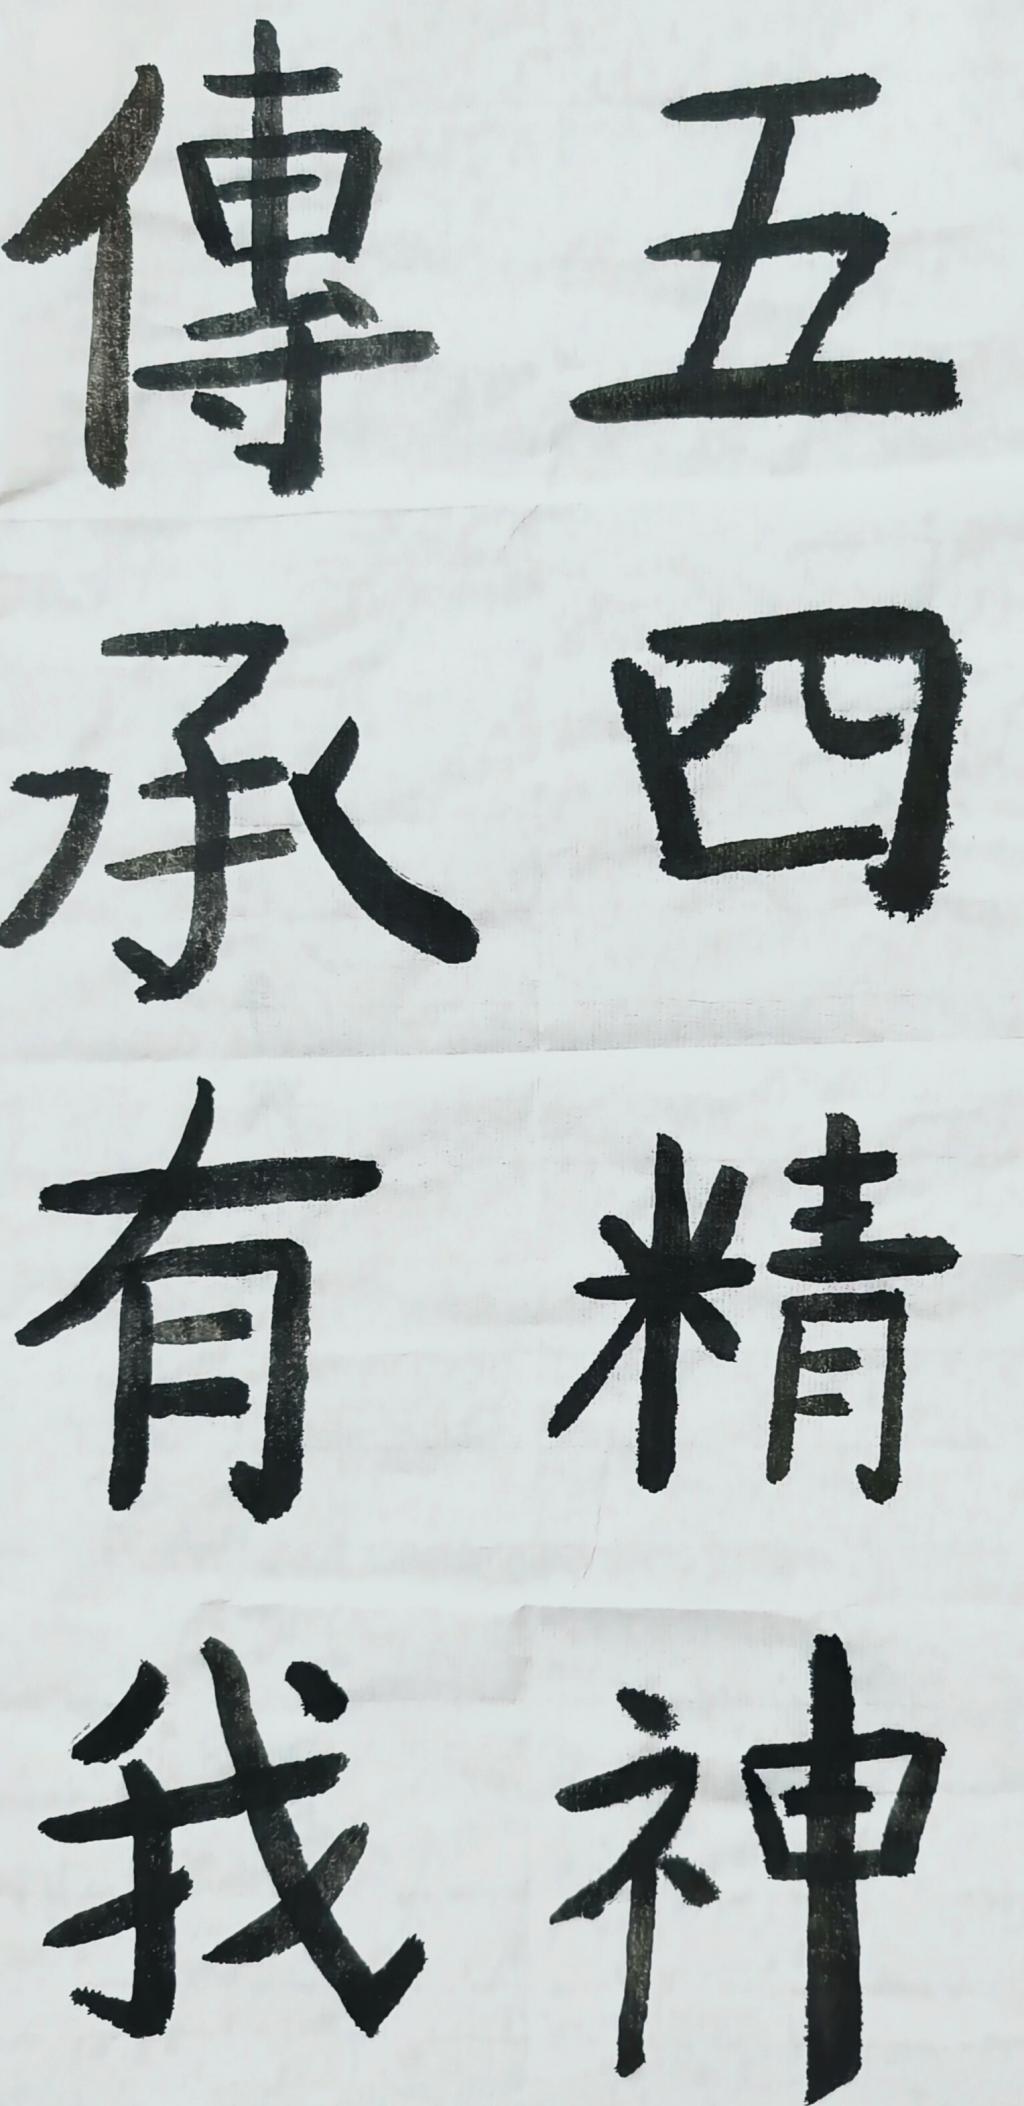 五四精神
傳承有我